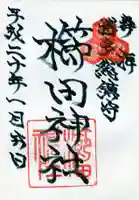 奉拝
博多総鎮守
櫛田神社
平成二十年一月六日